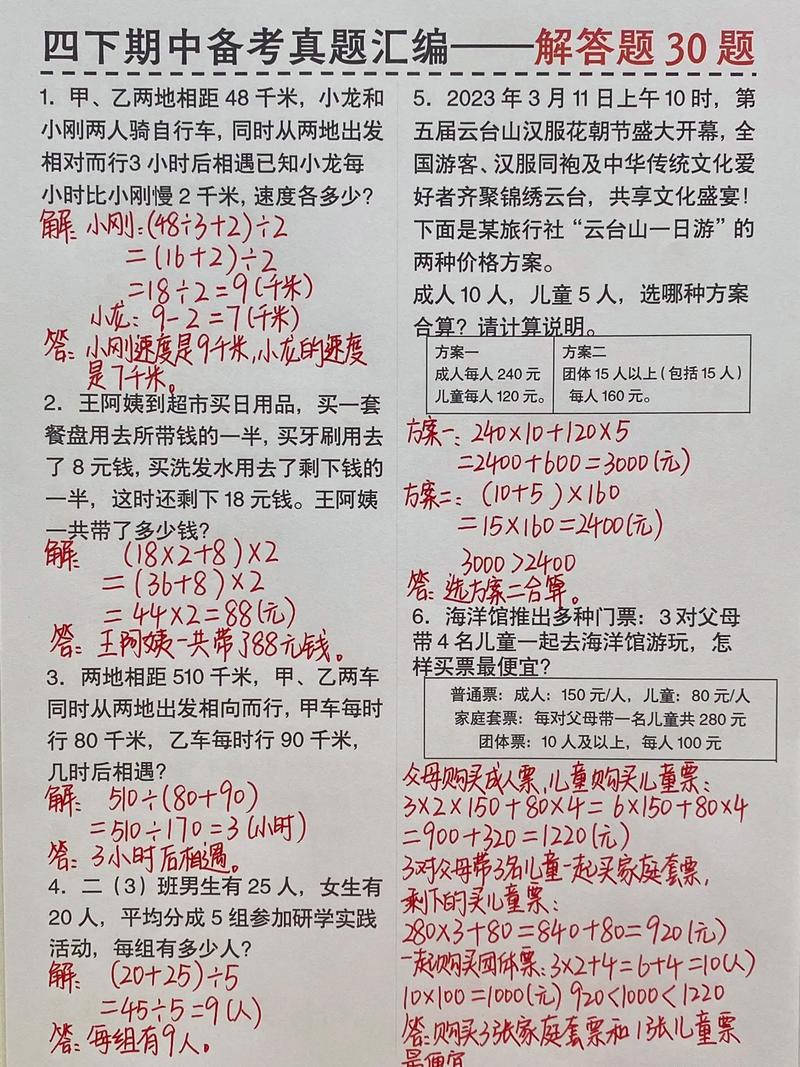 四下期中备考真题汇编——解答题30题
1. 甲、乙两地相距48千米，小龙和
小刚两人骑自行车，同时从两地出发
相对而行3小时后相遇已知小龙每
小时比小刚慢2千米，速度各多少？
解：小刚：(48÷3+2)÷2
=(16+2)÷2
=18÷2=9(千米)
小龙：9-2=7(千米)
答：小刚速度是9千米，小龙的速度
是7千米。
2. 王阿姨到超市买日用品，买一套
餐盘用去所带钱的一半，买牙刷用去
了8元钱，买洗发水用去了剩下钱的
一半，这时还剩下18元钱。王阿姨
一共带了多少钱？
解：(18×2+8)×2
=(36+8)×2
=44×2=88(元)
答：王阿姨一共带了88元钱。
3. 两地相距510千米，甲、乙两车
同时从两地出发相向而行，甲车每时
行80千米，乙车每时行90千米，
几时后相遇？
解：510÷(80+90)
=510÷170=3(小时)
答：3小时后相遇。
4. 二（3）班男生有25人，女生有
20人，平均分成5组参加研学实践
活动，每组有多少人？
解：(20+25)÷5
=45÷5=9(人)
答：每组有9人。
5. 2023年3月11日上午10时，第
五届云台山汉服花朝节盛大开幕，全
国游客、汉服同袍及中华传统文化爱
好者齐聚锦绣云台，共享文化盛宴！
下面是某旅行社“云台山一日游”的
两种价格方案。
成人10人，儿童5人，选哪种方案
合算？请计算说明。
方案一
成人每人240元
儿童每人120元。
方案二
团体15人以上（包括15人）
每人160元。
方案一：240×10+120×5
=2400+600=3000(元)
方案二：(10+5)×160
=15×160=2400(元)
3000>2400
答：选方案二合算。
6. 海洋馆推出多种门票：3对父母
带4名儿童一起去海洋馆游玩，怎
样买票最便宜？
普通票：成人：150元/人，儿童：80元/人
家庭套票：每对父母带一名儿童共280元
团体票：10人及以上，每人100元
父母购买成人票，儿童购买儿童票：
3×2×150+80×4=6×150+80×4
=900+320=1220(元)
3对父母带3名儿童一起买家庭套票，
剩下的买儿童票：
280×3+80=840+80=920(元)
一起购买团体票：3×2+4=6+4=10(人)
10×100=1000(元) 920<1000<1220
答：购买3张家庭套票和1张儿童票
最便宜